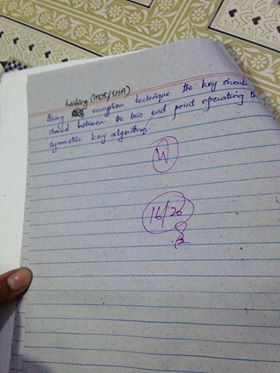 hashing (MD5/SHA)
Using encryption technique the key should
shared between the two end point operating
symmetric key algorithm.
16/20